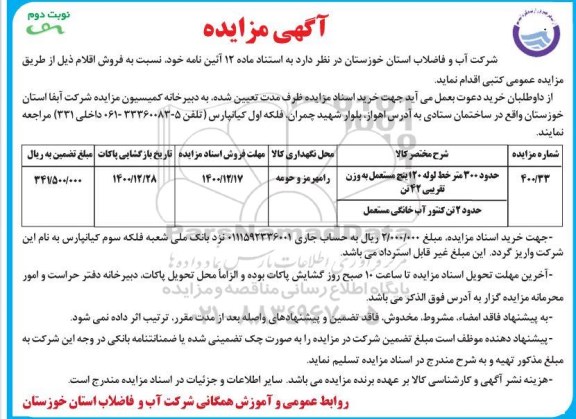 نوبت دوم
آگهی مزایده
شرکت آب و فاضلاب استان خوزستان در نظر دارد به استناد ماده ۱۲ آئین نامه خود، نسبت به فروش اقلام ذیل از طریق
مزایده عمومی کتبی اقدام نماید.
از داوطلبان خرید دعوت بعمل می آید جهت خرید اسناد مزایده ظرف مدت تعیین شده، به دبیرخانه کمیسیون مزایده شرکت آبفا استان
خوزستان واقع در ساختمان ستادی به آدرس اهواز، بلوار شهید چمران، فلکه اول کیانپارس (تلفن ۵-۳۳۳۶۰۰۸۳-۰۶۱ داخلی ۳۳۱) مراجعه
نمایند.
شماره مزایده شرح مختصر کالا محل نگهداری کالا مهلت فروش اسناد مزایده تاریخ بازگشایی پاکات مبلغ تضمین به ریال
۴۰۰/۳۳ حدود ۳۰۰ متر خط لوله ۱۲۰ اینچ مستعمل به وزن تقریبی ۴۲ تن رامهرمز و حومه ۱۴۰۰/۱۲/۱۷ ۱۴۰۰/۱۲/۲۸ ۳۴۱/۵۰۰/۰۰۰
حدود ۲ تن کنتور آب خانگی مستعمل
-جهت خرید اسناد مزایده، مبلغ ۲/۰۰۰/۰۰۰ ریال به حساب جاری ۰۱۱۱۵۹۲۳۳۶۰۰۱ نزد بانک ملی شعبه فلکه سوم کیانپارس به نام این
شرکت واریز گردد. این مبلغ غیر قابل استرداد می باشد.
-آخرین مهلت تحویل اسناد مزایده تا ساعت ۱۰ صبح روز گشایش پاکات بوده و الزاماً محل تحویل پاکات، دبیرخانه دفتر حراست و امور
محرمانه مزایده گزار به آدرس فوق الذکر می باشد.
-به پیشنهاد فاقد امضاء، مشروط، مخدوش، فاقد تضمین و پیشنهادهای واصله بعد از مدت مقرر، ترتیب اثر داده نمی شود.
-پیشنهاد دهنده موظف است مبلغ تضمین شرکت در مزایده را به صورت چک تضمینی شده یا ضمانتنامه بانکی در وجه این شرکت به
مبلغ مذکور تهیه و به شرح مندرج در اسناد مزایده تسلیم نماید.
-هزینه نشر آگهی و کارشناسی کالا بر عهده برنده مزایده می باشد. سایر اطلاعات و جزئیات در اسناد مزایده مندرج است.
روابط عمومی و آموزش همگانی شرکت آب و فاضلاب استان خوزستان